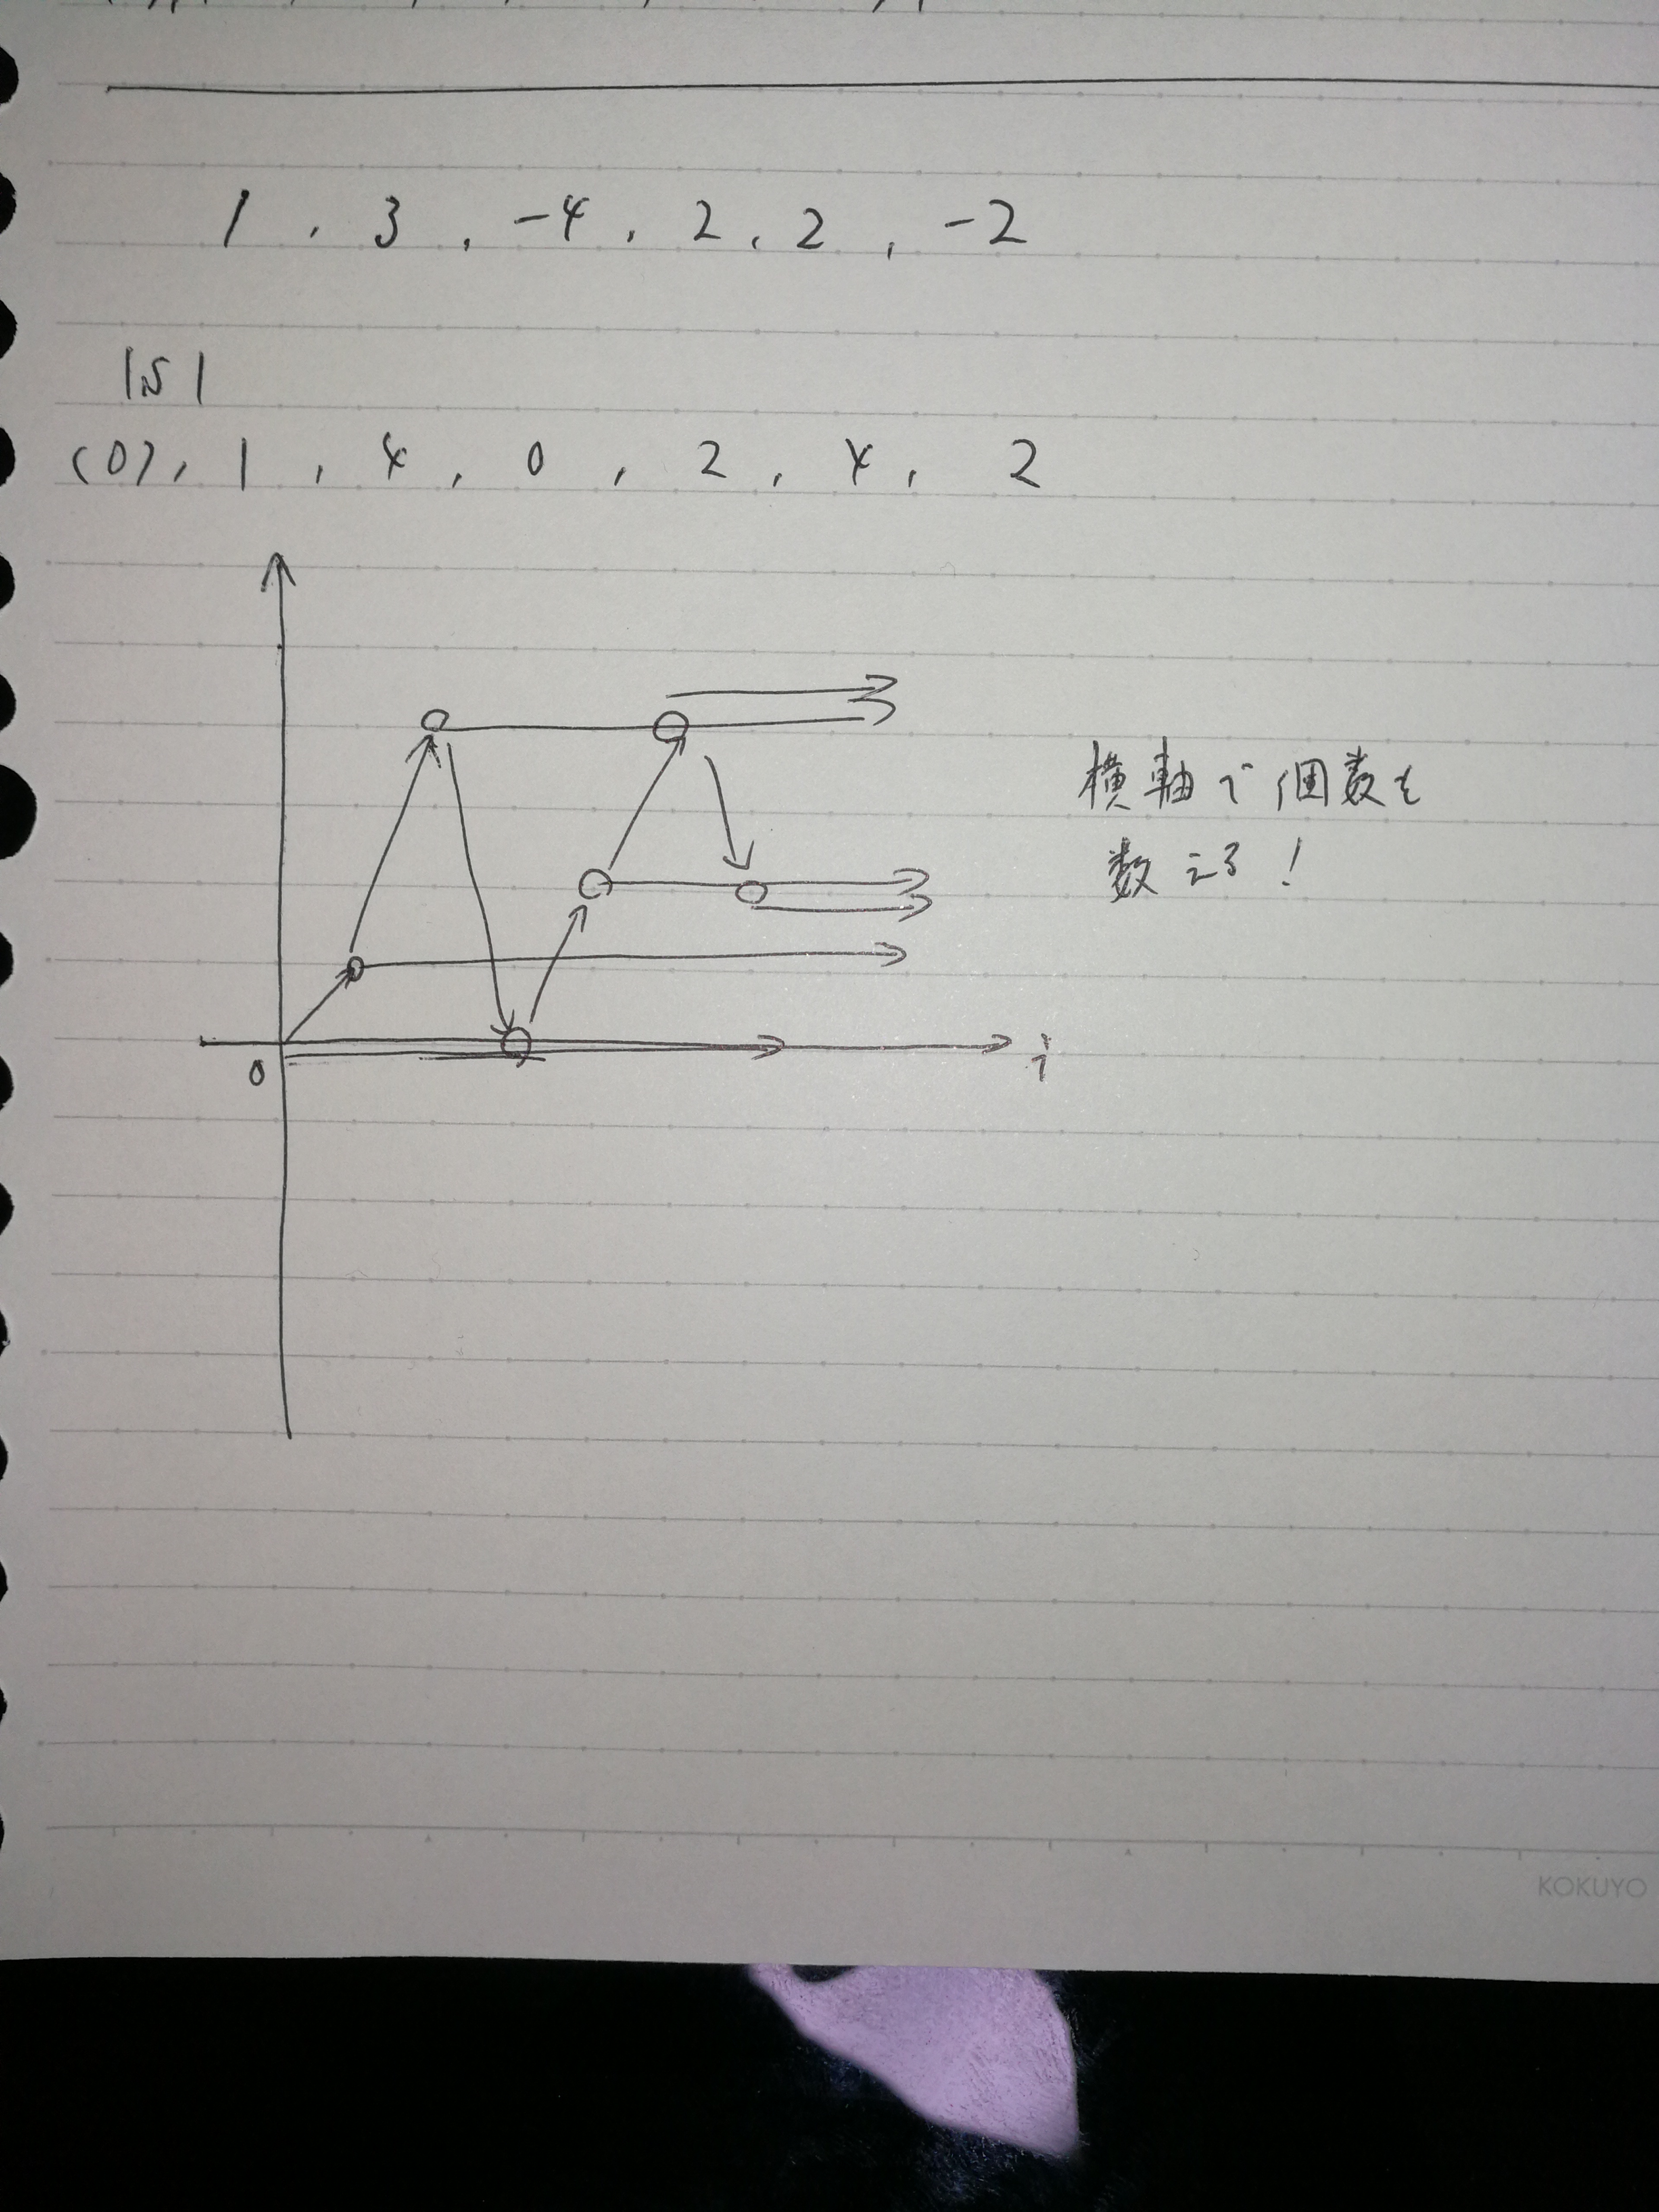 1 , 3 , -4 , 2 , 2 , -2
|S|
(0), 1 , 4 , 0 , 2 , 4 , 2
横軸で個数を
数える!
0
i
KOKUYO